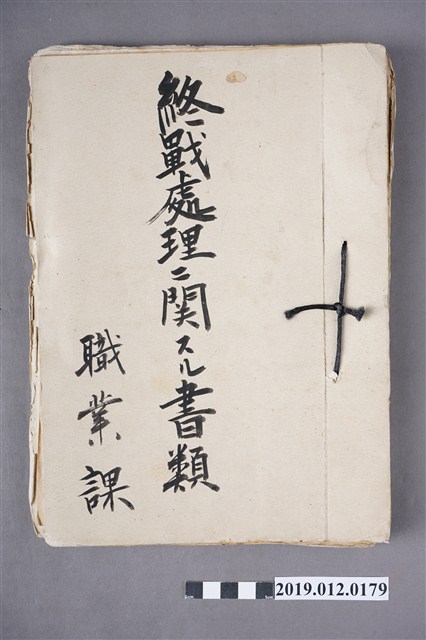 終戰處理ニ関スル書類
職業課
2019.012.0179